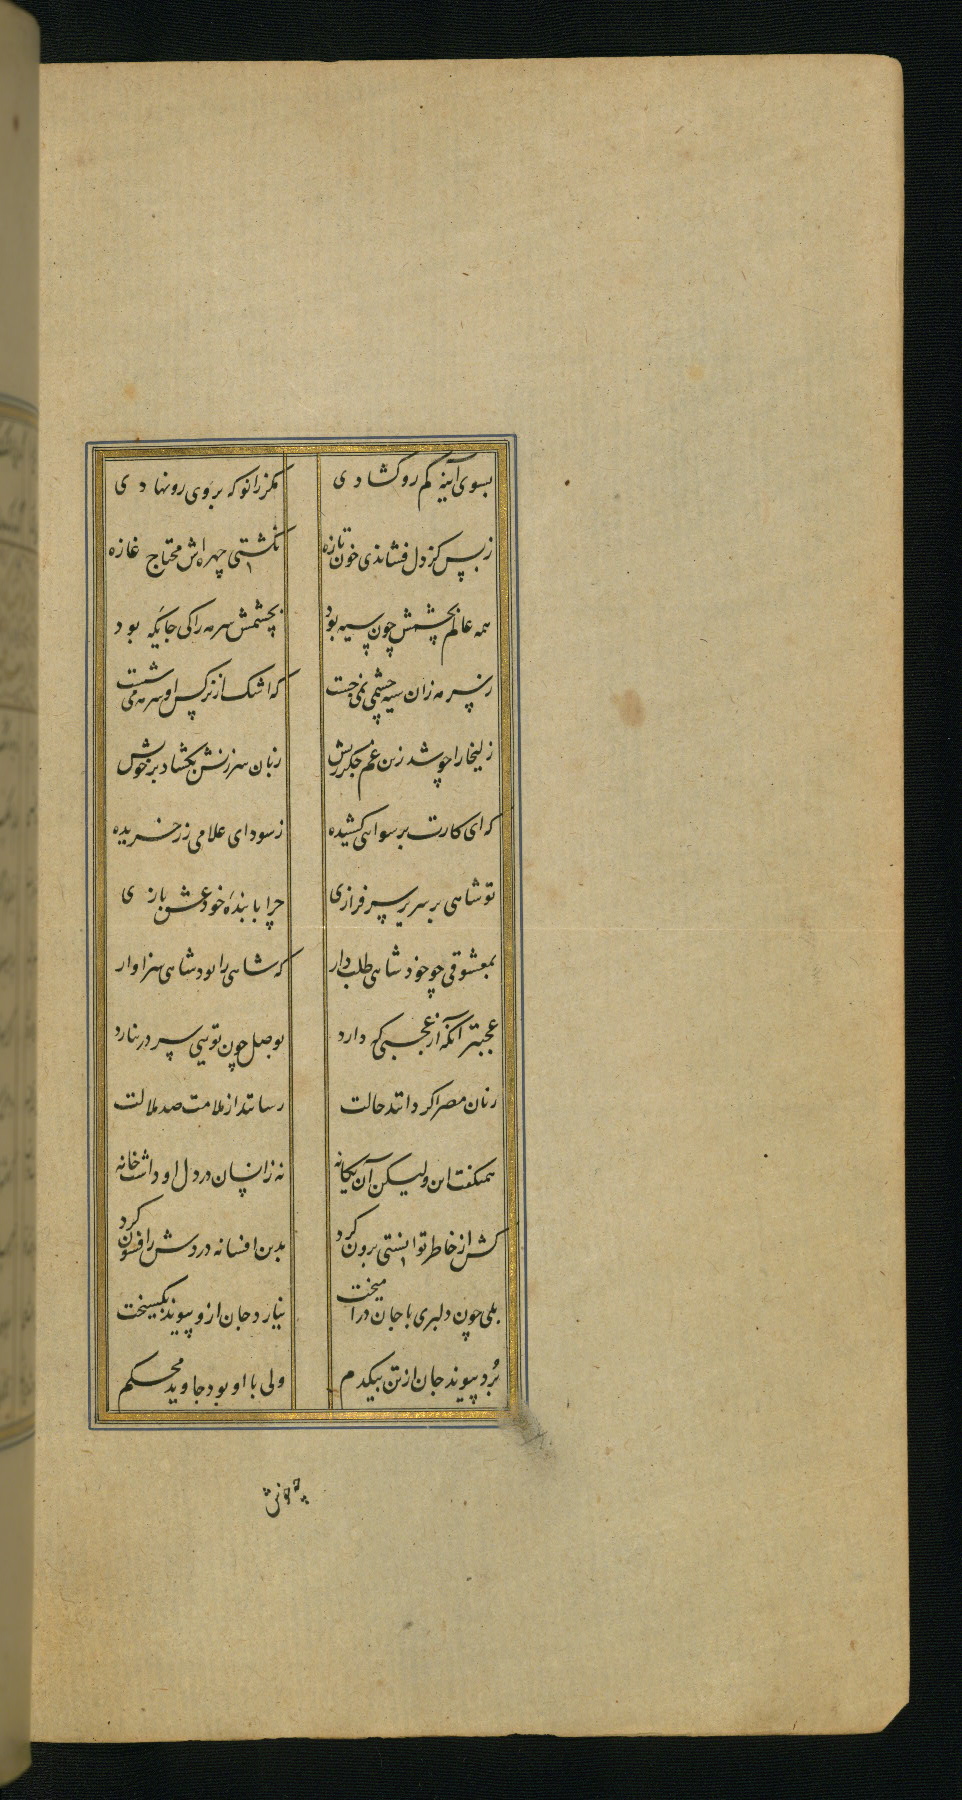 بسوی آینه کم رو گشادی مگر زانو که بر وی رو نهادی
ز بس کز دل فشاندی خون تازه نگشتی چهره‌اش محتاج غازه
همه عالم بچشمش چون سیه بود بچشمش سرمه را کی جایگه بود
ز سرمه زان سیه چشمی نمی جست که اشک از نرکس او سرمه می شست
زلیخا را چو شد زین غم جکر ریش زبان سرزنش بکشاد بر خویش
که ای کارت برسوایی کشیده ز سودای غلامی زر خریده
تو شاهی بر سریر سرفرازی چرا با بندهٔ خود عشق بازی
بمعشوقی چو خود شاهی طلب دار که شاهی را بود شاهی سزاوار
عجبتر آنکه از عجبی که دارد بوصل چون تویی سر در نیارد
زنان مصر اکر دانند حالت رسانند از ملامت صد ملالت
همیکفت این ولیکن آن یکانه نه زانسان در دل او داشت خانه
کش از خاطر توانستی برون کرد بدین افسانه دردش را فسون کرد
بلی چون دلبری با جان درآمیخت نیارد جان ازو پیوند بکسیخت
بُرد پیوند جان از تن بیکدم ولی با او بود جاوید محکم